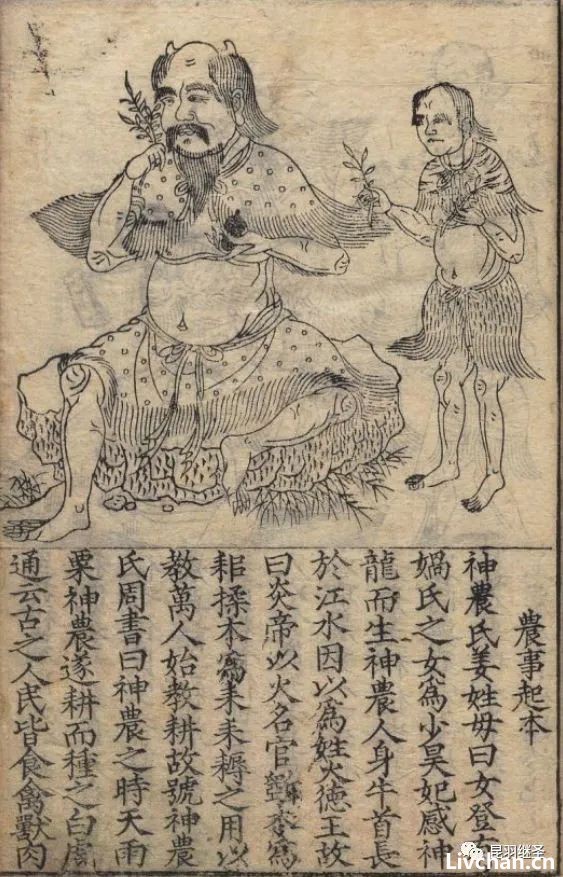 農事起本
神農氏姜姓母曰女登有
媧氏之女為少昊妃感神
龍而生神農人身牛首長
於江水因以為姓火德王故
曰炎帝以火名官為
耜揉本為耒耒耨之用以
教萬人始教耕故號神農
氏周書曰神農之時天雨
粟神農遂耕而種之白虎
通云古之人民皆食禽獸肉
昆羽继圣
Livchan.cn